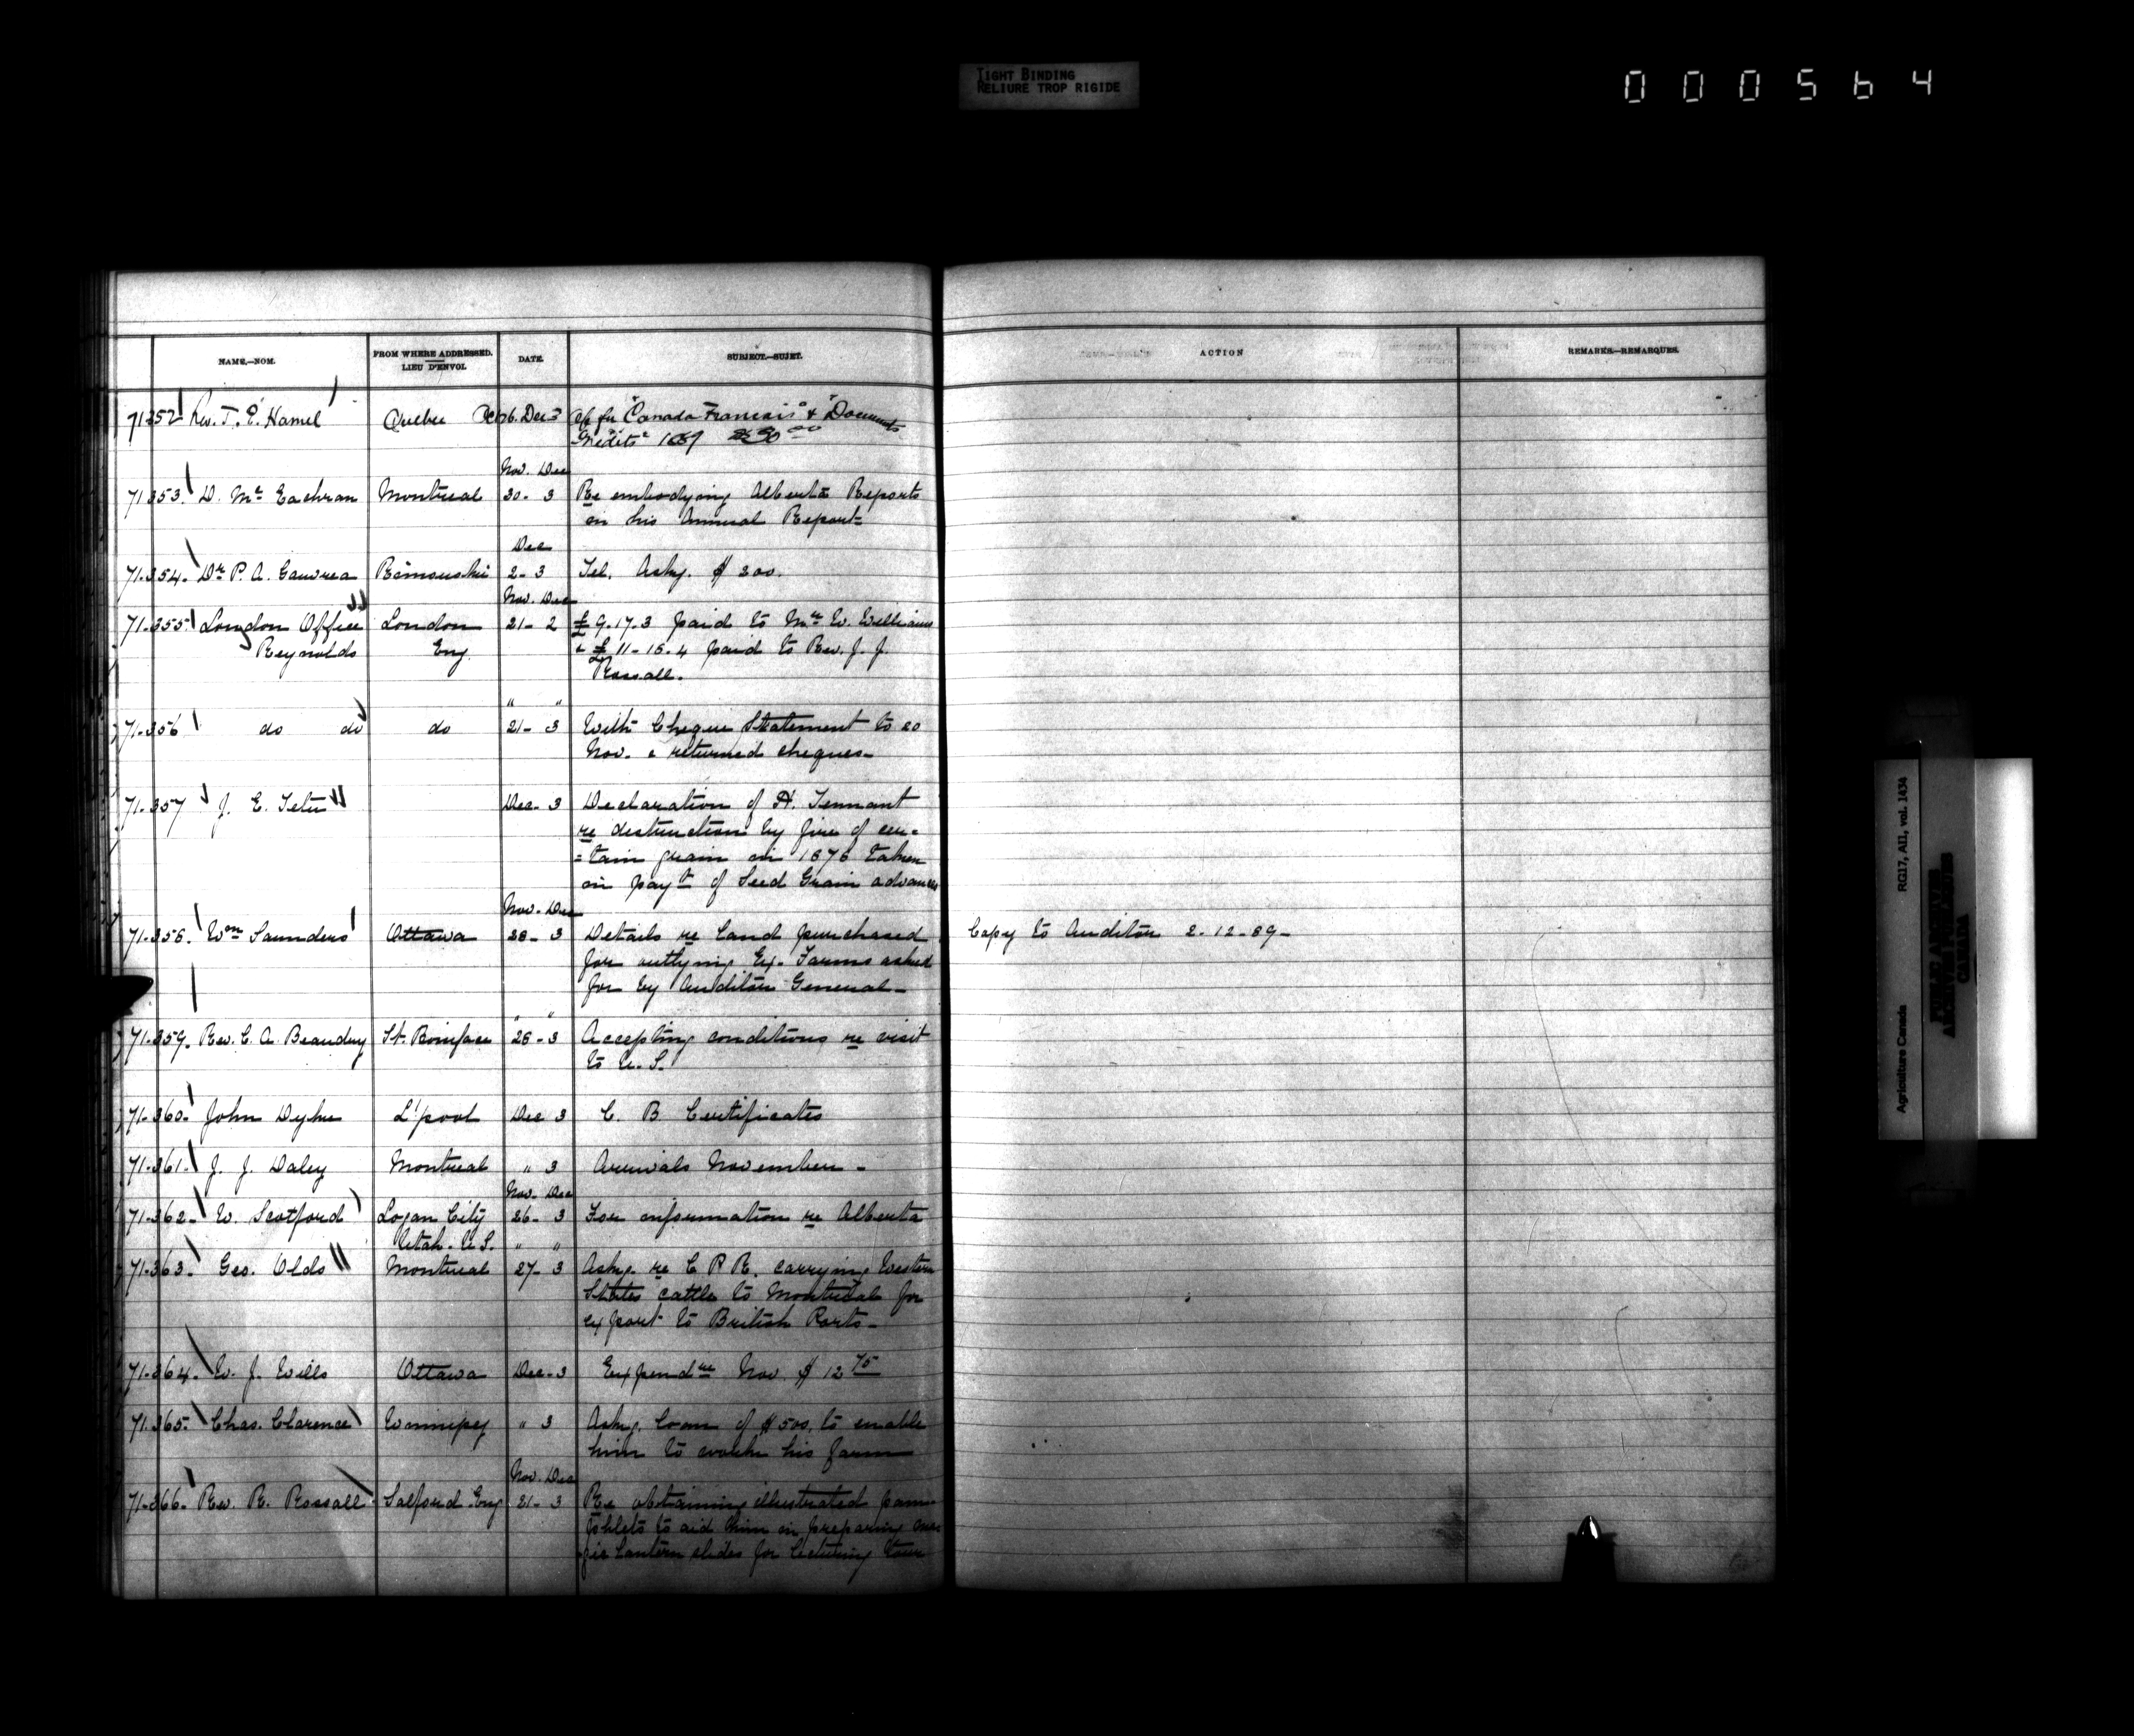 TIGHT BINDING
RELIURE TROP RIGIDE
000564
NAME.—NOM.
FROM WHERE ADDRESSED.
LIEU D'ENVOI.
DATE.
SUBJECT.—SUJET.
ACTION
REMARKS.—REMARQUES.
71352 Rev. T. E. Hamel Quebec Dec 3 "Canada Francais" & "Documents
Inédits" 1889
Nov. Dec
71.353. D. Mc Eachran Montreal 30- 3 Re embodying Alberta Reports
in his Annual Report-
Dec
71.354. Dr P. A. Gauvrea Rimouski 2- 3 Tel. Askg. $ 200.
Nov. Dec
71.355 London Office London 21- 2 £ 9.17.3 paid to Mr W. Williams
Reynolds Eng. & £ 11-15.4 paid to Rev. J. J.
Rossall.
" "
71.356 do do do 21- 3 With Cheque Statement to 20
Nov. & returned cheques-
71.357 J. E. Tetu Dec- 3 Declaration of A. Tennant
re destruction by fire of cer=
=tain grain in 1876 taken
in payt of Seed Grain advances
Nov. Dec
71.358. Wm Saunders Ottawa 28- 3 Details re land purchased Copy to Auditor 2-12-89-
for outlying Ex. Farms asked
for by Auditor General-
" "
71.359. Rev. C. A. Beaudry St. Boniface 26- 3 Accepting conditions re visit
to U.S.
71-360. John Dyke L'pool Dec 3 C. B. Certificates
71-361- J. J. Daley Montreal " 3 Arrivals November -
Nov. Dec
71-362- W. Scotford Logan City 26- 3 For information re Alberta
Utah. U.S. " "
71-363. Geo. Olds Montreal 27- 3 Askg. re C P R. carrying Western
States cattle to Montreal for
export to British Ports-
71-364. W. J. Wills Ottawa Dec-3 Expendre Nov. $ 12 75
71.365. Chas. Clarence Winnipeg " 3 Askg. loan of $500, to enable
him to work his farm
Nov. Dec
71-366. Rev. R. Rossall Salford Eng 21- 3 Re obtaining illustrated pam-
phlets to aid him in preparing ma
gic lantern slides for lecturing tour
Agriculture Canada RG17, AII, vol. 1434
PUBLIC ARCHIVES
ARCHIVES PUBLIQUES
CANADA